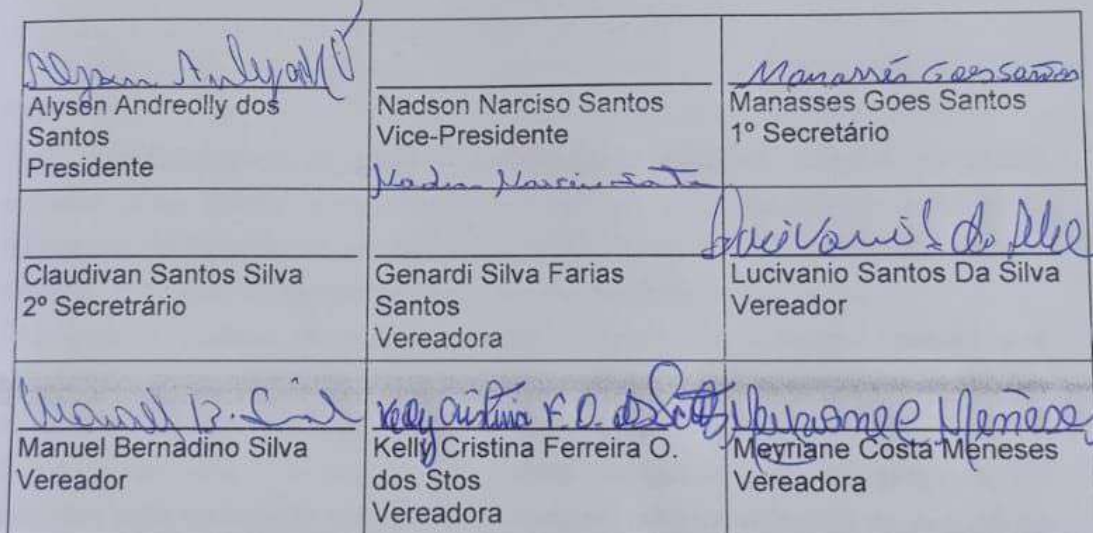 Alysen Andreolly dos
Santos
Presidente
Nadson Narciso Santos
Vice-Presidente
Manasses Goes Santos
Manasses Goes Santos
1º Secretário
Claudivan Santos Silva
2º Secretrário
Genardi Silva Farias
Santos
Vereadora
Lucivanio Santos Da Silva
Vereador
Manuel B. Silva
Manuel Bernadino Silva
Vereador
Kelly Cristina F. O. dos
Kelly Cristina Ferreira O.
dos Stos
Vereadora
Meneses
Meyriane Costa Meneses
Vereadora